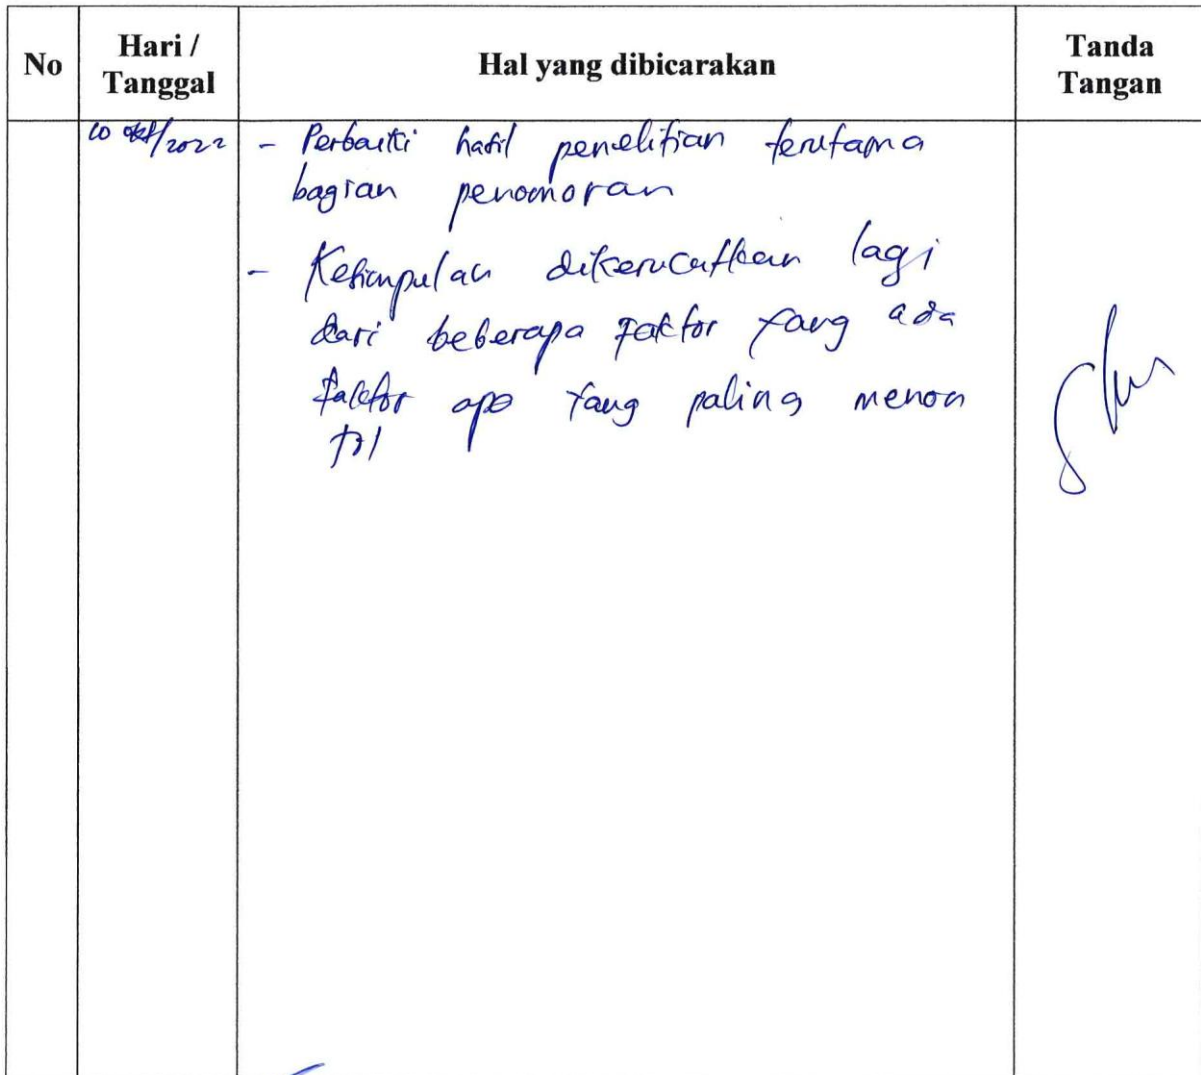 No
Hari /
Tanggal
Hal yang dibicarakan
Tanda
Tangan
10 okt/2022
- Perbaiki hasil penelitian terutama
bagian penomoran
- Kesimpulan dikerucutkan lagi
dari beberapa faktor yang ada
faktor apa yang paling menon
jol